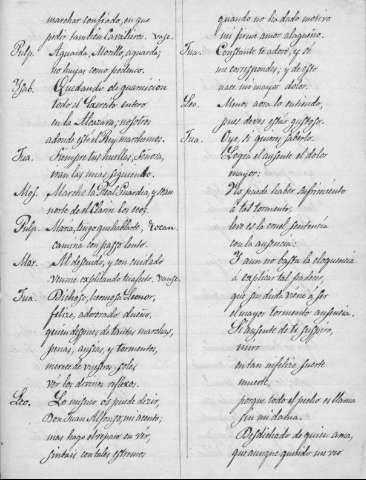 marchar confiado, en que
pedir tambien Cavallero. vase
Pulp. Aguarda, Morillo, aguarda,
no huyas como pécora.
Ysab. Quedando de guarnicion
todo el Tercio entero
en la Alcazara; nosotros
adonde está el Rey marchemos.
Jua. Siempre tus huellas, Señora,
iran las mias siguiendo.
Moj. Marche la Real Guardia, y sean
norte de el Clarin los ecos.
Pulp. Mara, tengo que hablarte, y tocan
camina con passo lento.
Mar. Al desgando, y con cuidado
venme explicando tu afecto. vanse
Jua. Dichoso, hermosa Leonor,
felize, adorado dueño,
quien despues de tantas marchas,
penas, ansias, y tormentos,
merece de vuestros soles
vér los divinos reflexos.
Leo. Lo mismo os puede dezir,
Don Juan Alfonso, mi acento;
mas hago el reparo en vér,
sintais con tales estremos
quando no ha dado motivo
mi firme amor alagueño.
Jua. Constante te adoré, y sé
me correspondes; y de esto
nace mi mayor dolor.
Leo. Menos aora lo entiendo,
pues deves estar gustoso.
Jua. Oye, si quieres saberlo.
Logra el ausente el dolor
mayor:
No puede haber sufrimiento
á tal tormento,
pero es la cruel sentencia
con la ausencia:
Y aun no basta la eloquencia
á explicar tal padecer,
que sin duda viene á ser
el mayor tormento ausencia.
El ausente de te suspiro,
miro
en tan infelice suerte
muerte,
porque todo el pecho es llama
sin mi dama.
Desdichado de quien ama,
que aunque querido me veo